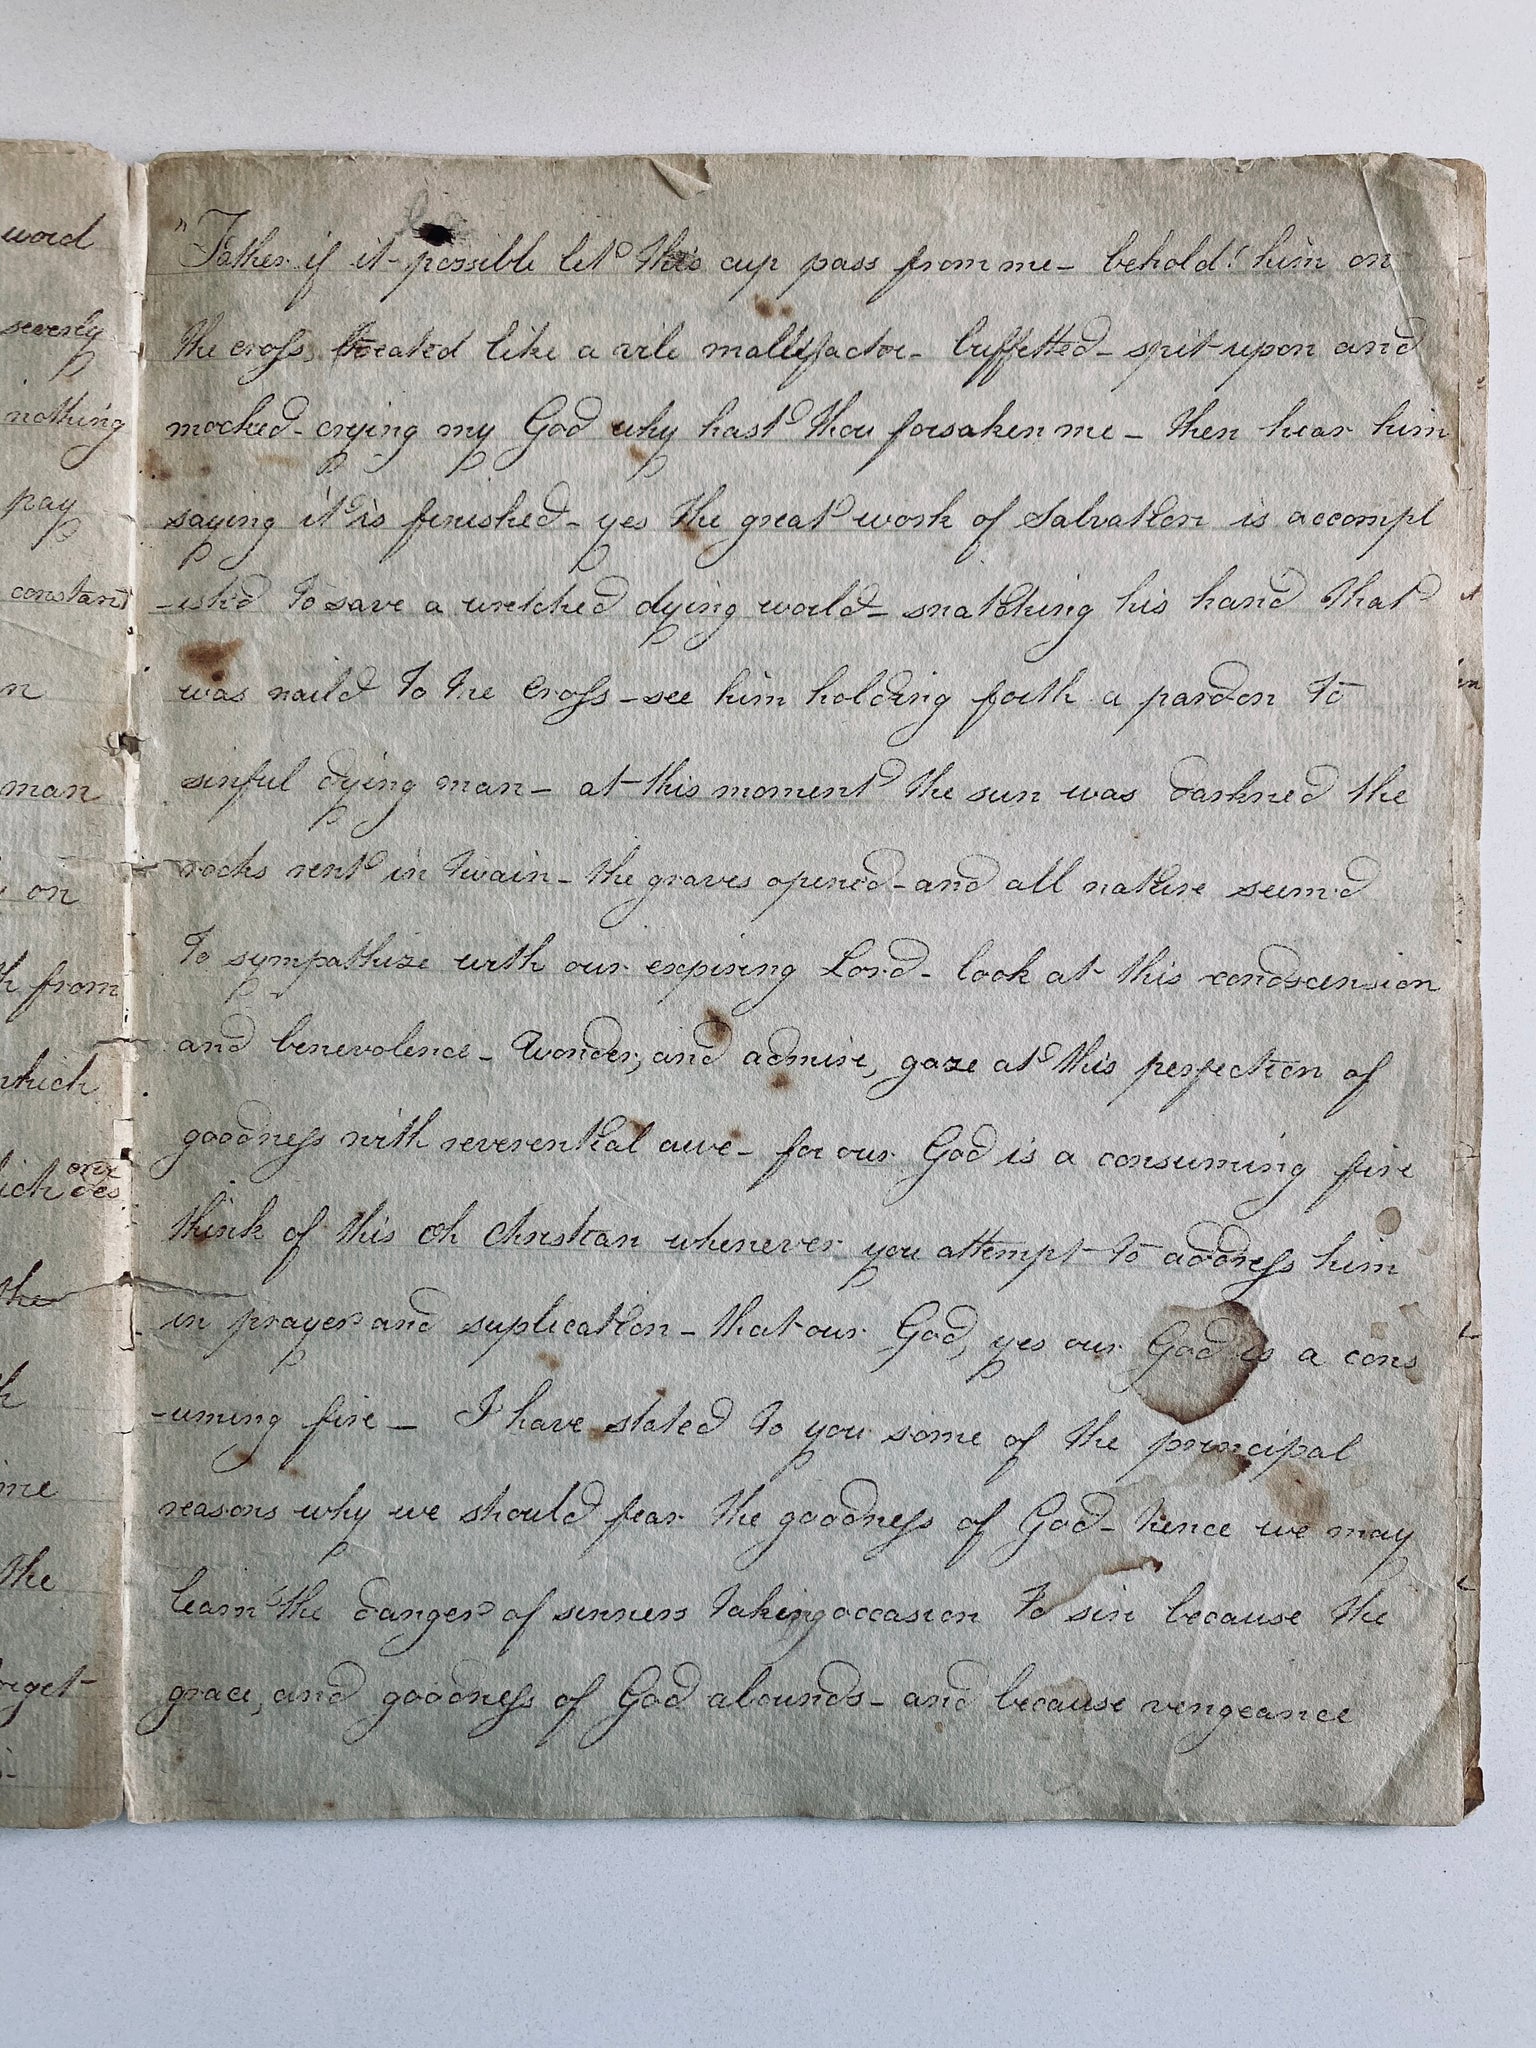 word
severly
nothing
pay
constant
n
man
on
from
which
one
ich does
the
h
ine
the
orget
"Father if it be possible let this cup pass from me - behold! him on
the cross, treated like a vile mallefactor - buffetted - spit upon and
mocked - crying my God why hast thou forsaken me - then hear him
saying it is finished - yes the great work of Salvation is accompl
-ish'd to save a wretched dying world - snatching his hand that
was naild to the Cross - see him holding forth a pardon to
sinful dying man - at this moment the sun was darkned the
rocks rent in twain - the graves opened - and all nature seem'd
to sympathize with our expiring Lord - look at this condscension
and benevolence - Wonder, and admire, gaze at this perfection of
goodness with reverential awe - for our God is a consuming fire
think of this Oh Christian whenever you attempt to address him
in prayer and suplication - that our God, yes our God is a cons
-uming fire - I have stated to you some of the principal
reasons why we should fear the goodness of God - hence we may
learn the danger of sinners taking occasion to sin because the
grace, and goodness of God abounds - and because vengeance
in